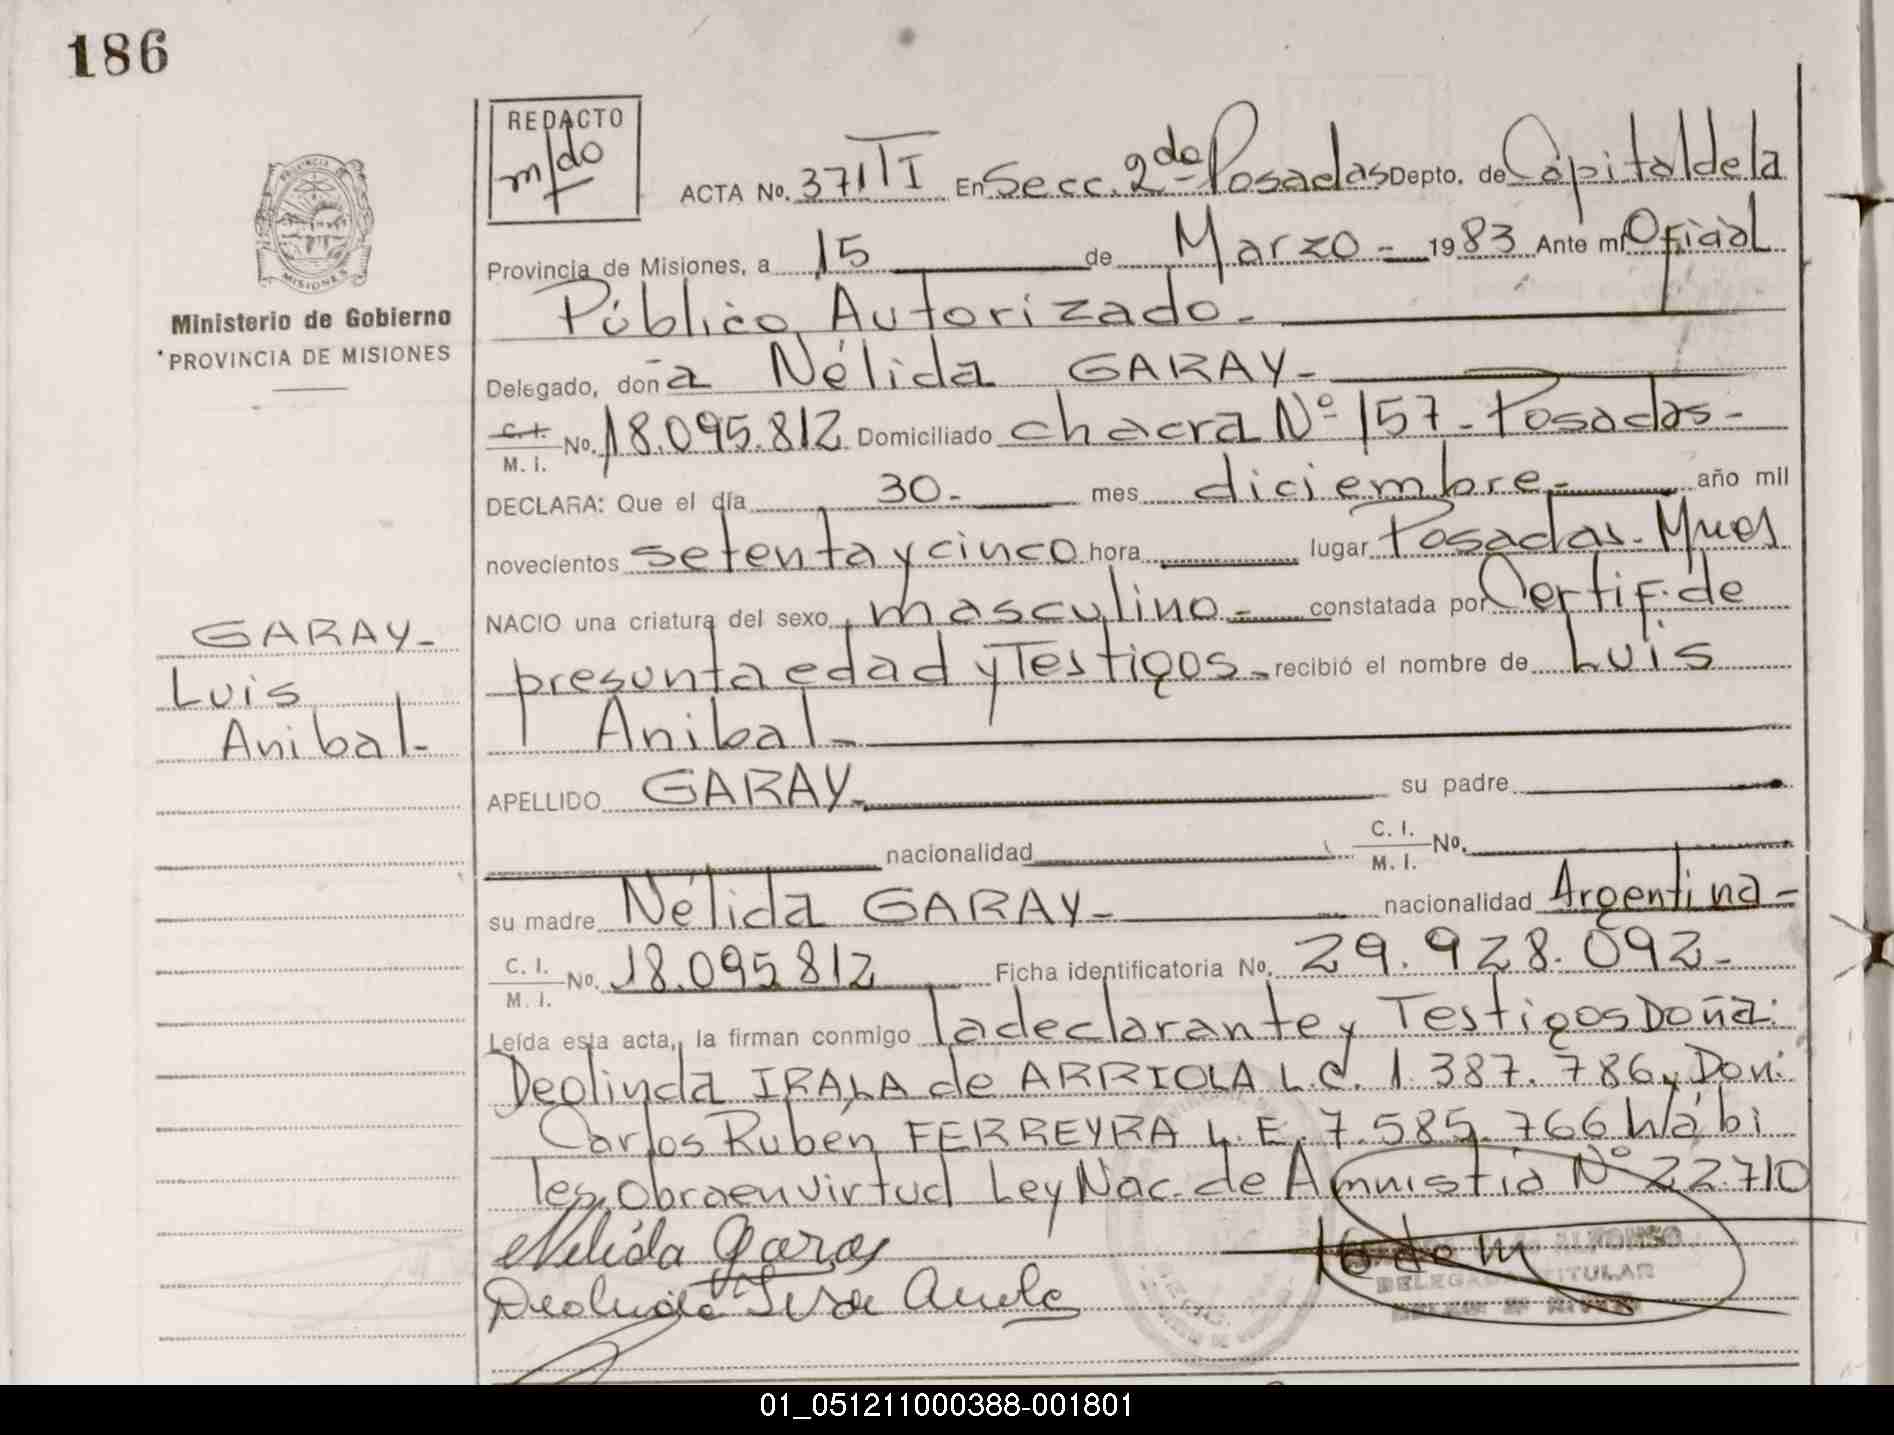 186
REDACTO
m/do
ACTA No. 371 TI En Secc. 2da Posadas Depto. de Capital de la
Provincia de Misiones, a 15 de Marzo - 1983 Ante mí Oficial
Público Autorizado.-
Delegado, doña Nélida GARAY-
C. I. M. I. No. 18.095.812 Domiciliado chacra Nº 157 - Posadas-
DECLARA: Que el día 30- mes diciembre- año mil
novecientos setenta y cinco hora lugar Posadas. Mnes
NACIO una criatura del sexo masculino- constatada por Certif. de
presunta edad y Testigos- recibió el nombre de Luis
Anibal-
APELLIDO GARAY- su padre
nacionalidad C. I. M. I. No.
su madre Nélida GARAY- nacionalidad Argentina-
C. I. M. I. No. 18.095812 Ficha identificatoria No. 29.928.092-
Leída esta acta, la firman conmigo la declarante y Testigos Doña:
Deolinda IRALA de ARRIOLA L.C. 1.387.786 y Don:
Carlos Rubén FERREYRA L.E. 7.585.766 hábi
les, obra en virtud Ley Nac. de Amnistia Nº 22.710
Nelida Garay
PROVINCIA DE MISIONES
Ministerio de Gobierno
PROVINCIA DE MISIONES
GARAY-
Luis
Anibal-
DELEGADA TITULAR
01_051211000388-001801